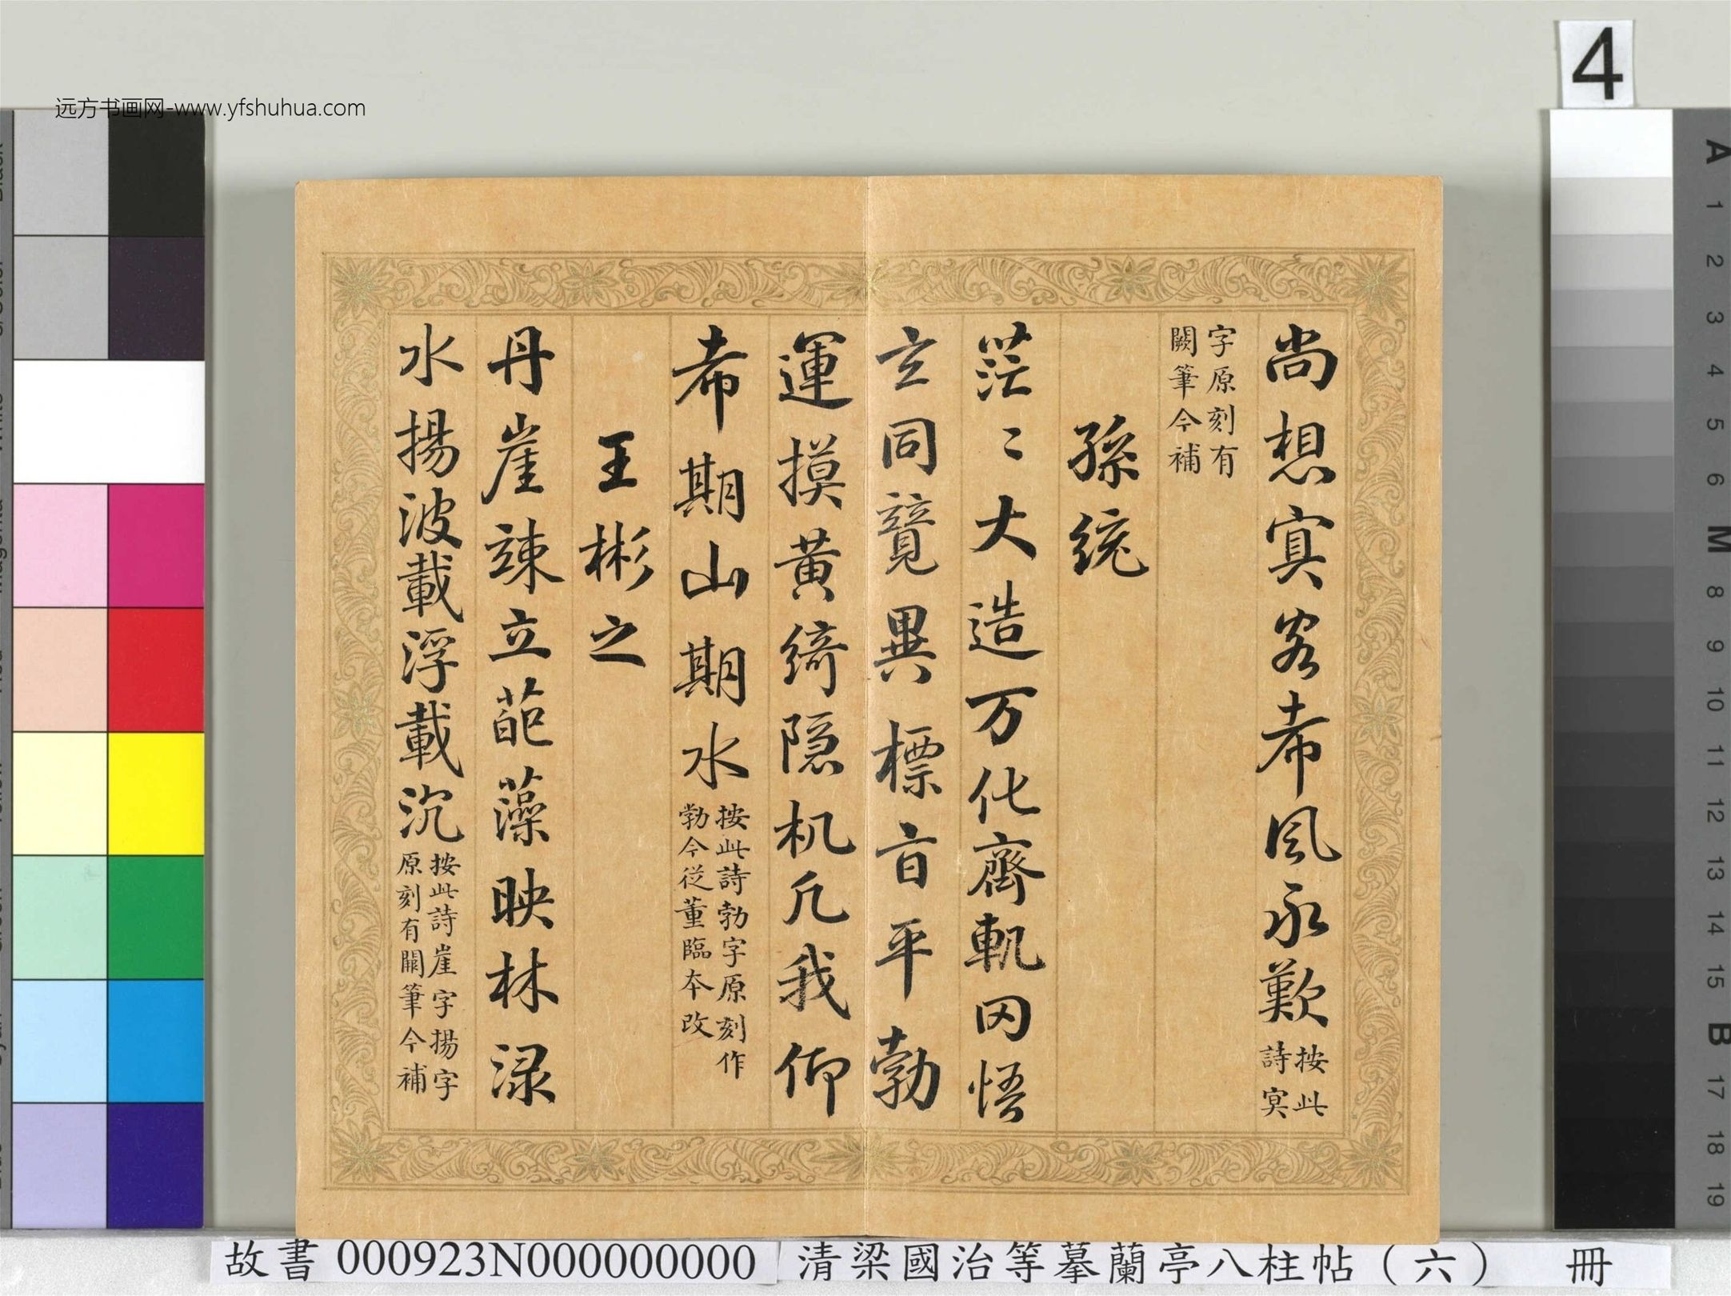 远方书画网-www.yfshuhua.com
4
尚想寘客希風永歎按此詩寘
字原刻有闕筆今補
孫統
茫〻大造万化齊軌罔悟
玄同競異標旨平勃
運摸黄綺隐机凡我仰
希期山期水按此詩勃字原刻作勃今從董臨本改
王彬之
丹崖竦立葩藻映林渌
水揚波載浮載沉按此詩崖字揚字原刻有闕筆今補
A
1
2
3
4
5
6
M
8
9
10
11
12
13
14
15
B
17
18
19
故書 000923N000000000 清梁國治等摹蘭亭八柱帖（六） 冊